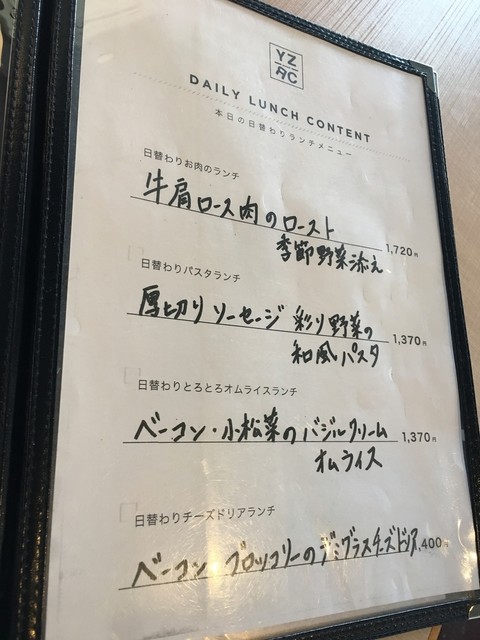 YZ
AC
DAILY LUNCH CONTENT
本日の日替わりランチメニュー
日替わりお肉のランチ
牛肩ロース肉のロースト
季節野菜添え 1,720円
日替わりパスタランチ
厚切りソーセージ 彩り野菜の
和風パスタ 1,370円
日替わりとろとろオムライスランチ
ベーコン・小松菜のバジルクリーム
オムライス 1,370円
日替わりチーズドリアランチ
ベーコン ブロッコリーのデミグラスチーズドリア ,400円